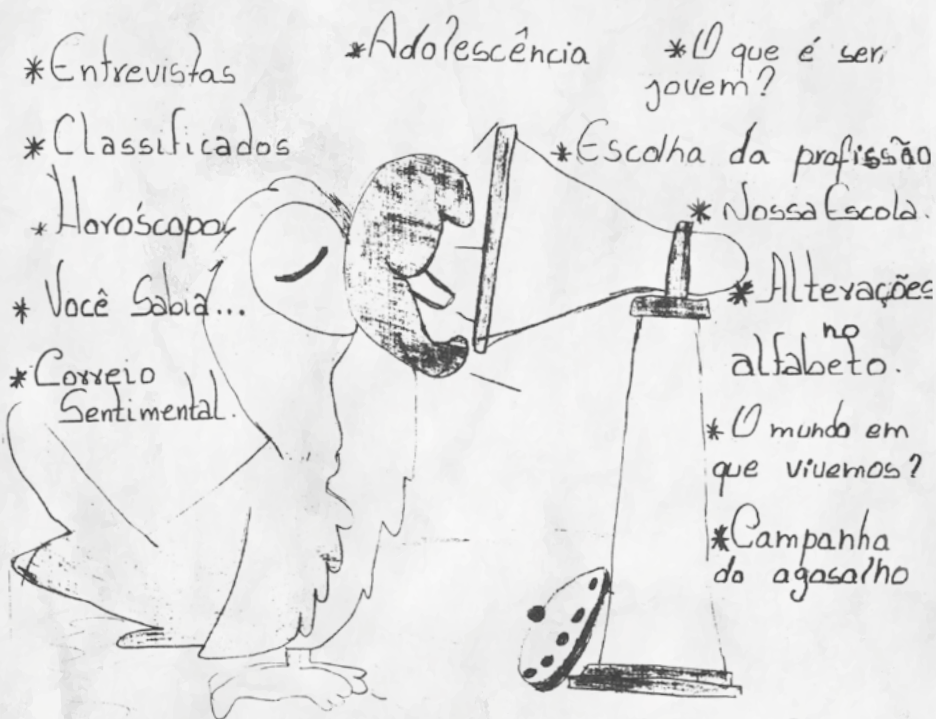 *Entrevistas
*Classificados
*Horóscopo
*Você Sabia...
*Correio
Sentimental.
*Adolescência
*O que é ser
jovem?
*Escolha da profissão
*Nossa Escola.
*Alterações
no
alfabeto.
*O mundo em
que vivemos?
*Campanha
do agasalho